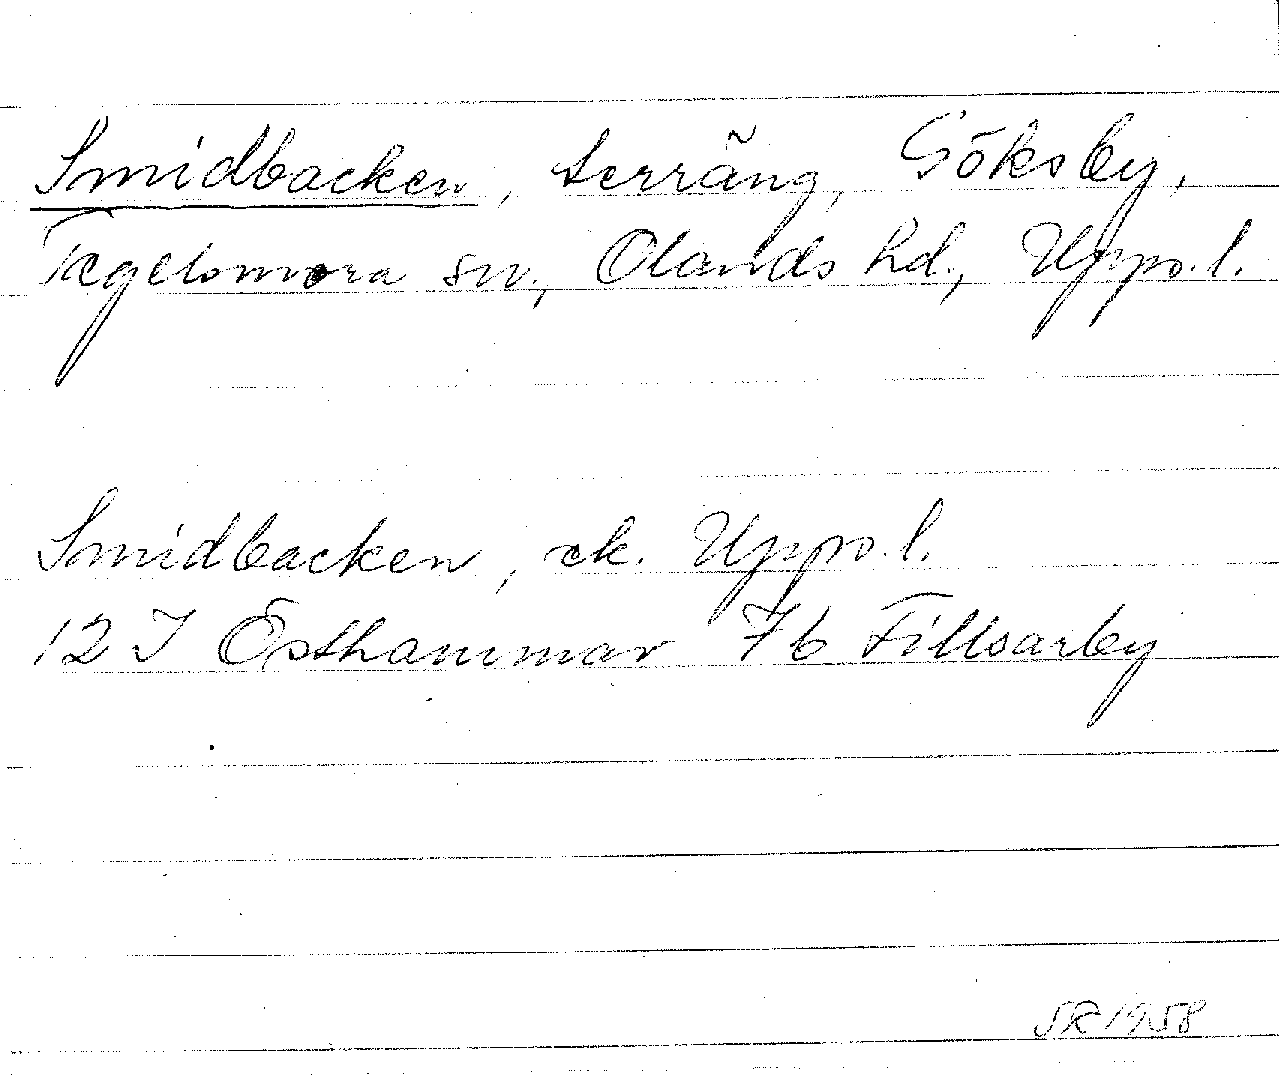 Smidbacken, terräng, Göksby,
Tegelsmora sn., Olands hd., Upps. l.
Smidbacken, ek. Upps. l.
12 I Östhammar 7b Fillsarby
SR 1958